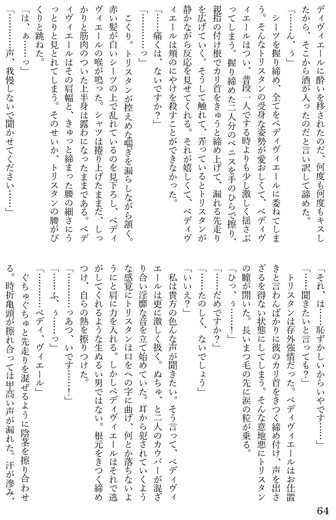 ディヴィエールに酔いを移されたのだ、何度も何度もキスし
たから、そこから酒が入ったのだと言い訳して諦めた。
「……ん、ぅ」
　シーツを握り締め、全てをベディヴィエールに委ねてしま
う。そんなトリスタンの受身な姿勢が愛おしくて、ベディヴ
ィエールはつい、普段一人でする時よりも少し激しく揺さぶ
ってしまう。握り締めた二人分のペニスを手のひらで擦り、
親指の付け根でカリ首をきゅうと締め上げて、漏れる先走り
を広げていく。そうして触れて、弄っているとトリスタンが
静かながら反応を見せてくれる。それが嬉しくて、ベディヴ
ィエールは頬のにやけを殺すことができなかった。
「……痛くは、ないですか？」
「……りっ」
　こくり。トリスタンが控えめな喘ぎを漏らしながら頷く。
赤い髪が白いシーツの上で乱れているのを見下ろし、ベディ
ヴィエールの喉が鳴った。シャツは捲り上げたままだ、しっ
かりと筋肉のついた上半身は露わになったままである。ベデ
ィヴィエールはその肩幅と、きゅっと締まった腰の細さにう
っとりと見入れてしまう。そのせいか、トリスタンの腰がび
くりと跳ねた。
「は、ぁ……っ」
「……声、我慢しないで聞かせてください……」
「それ、は……恥ずかしいからいやです……」
「……聞きたいと言っても？」
　トリスタンは存外強情だった。ベディヴィエールはお仕置
きと言わんばかりに彼のカリ首をきつく締め付け、声を出さ
ざるを得ない状態にしてしまう。そんな意地悪にトリスタン
の瞳が開いた。長いまつ毛の先に涙の粒が乗る。
「ひっ、ぅ……！」
「……だめですか？」
「いいえ？」
「……たのしく、ないでしょう」
　私は貴方の色んな声が聞きたい。そう言って、ベディヴィ
エールは更に激しく扱く。ぬちゅ、と二人のカウパーが混ざ
り合い淫靡な音を立て始めていた。耳から犯されていくよう
な感覚にトリスタンは口をへの字に曲げ、何とか落ちないよ
うにと肩に力を入れる。しかしベディヴィエールはそれで逃
がしてくれるような生ぬるい男ではない。根元をきつく締め
つけ、自らの熱を擦りつけた。
「……っあつ、いです……！」
「……ふ、ぅ……っ」
「……ベディ、ヴィエール」
　ぐちゅぐちゅと先走りを混ぜるように陰茎を擦り合わせ
る。時折亀頭が擦れ合っては甲高い声が漏れた。汗が滲み、
64